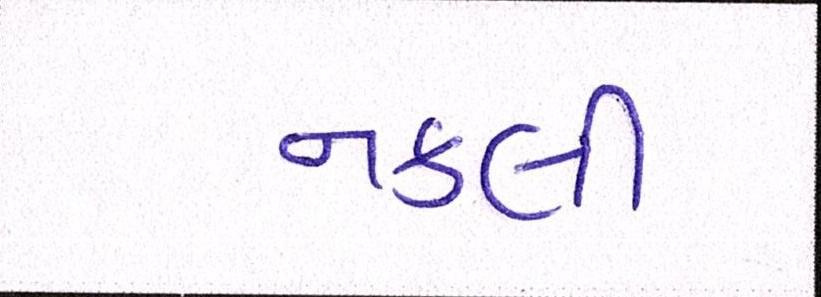 નકલી